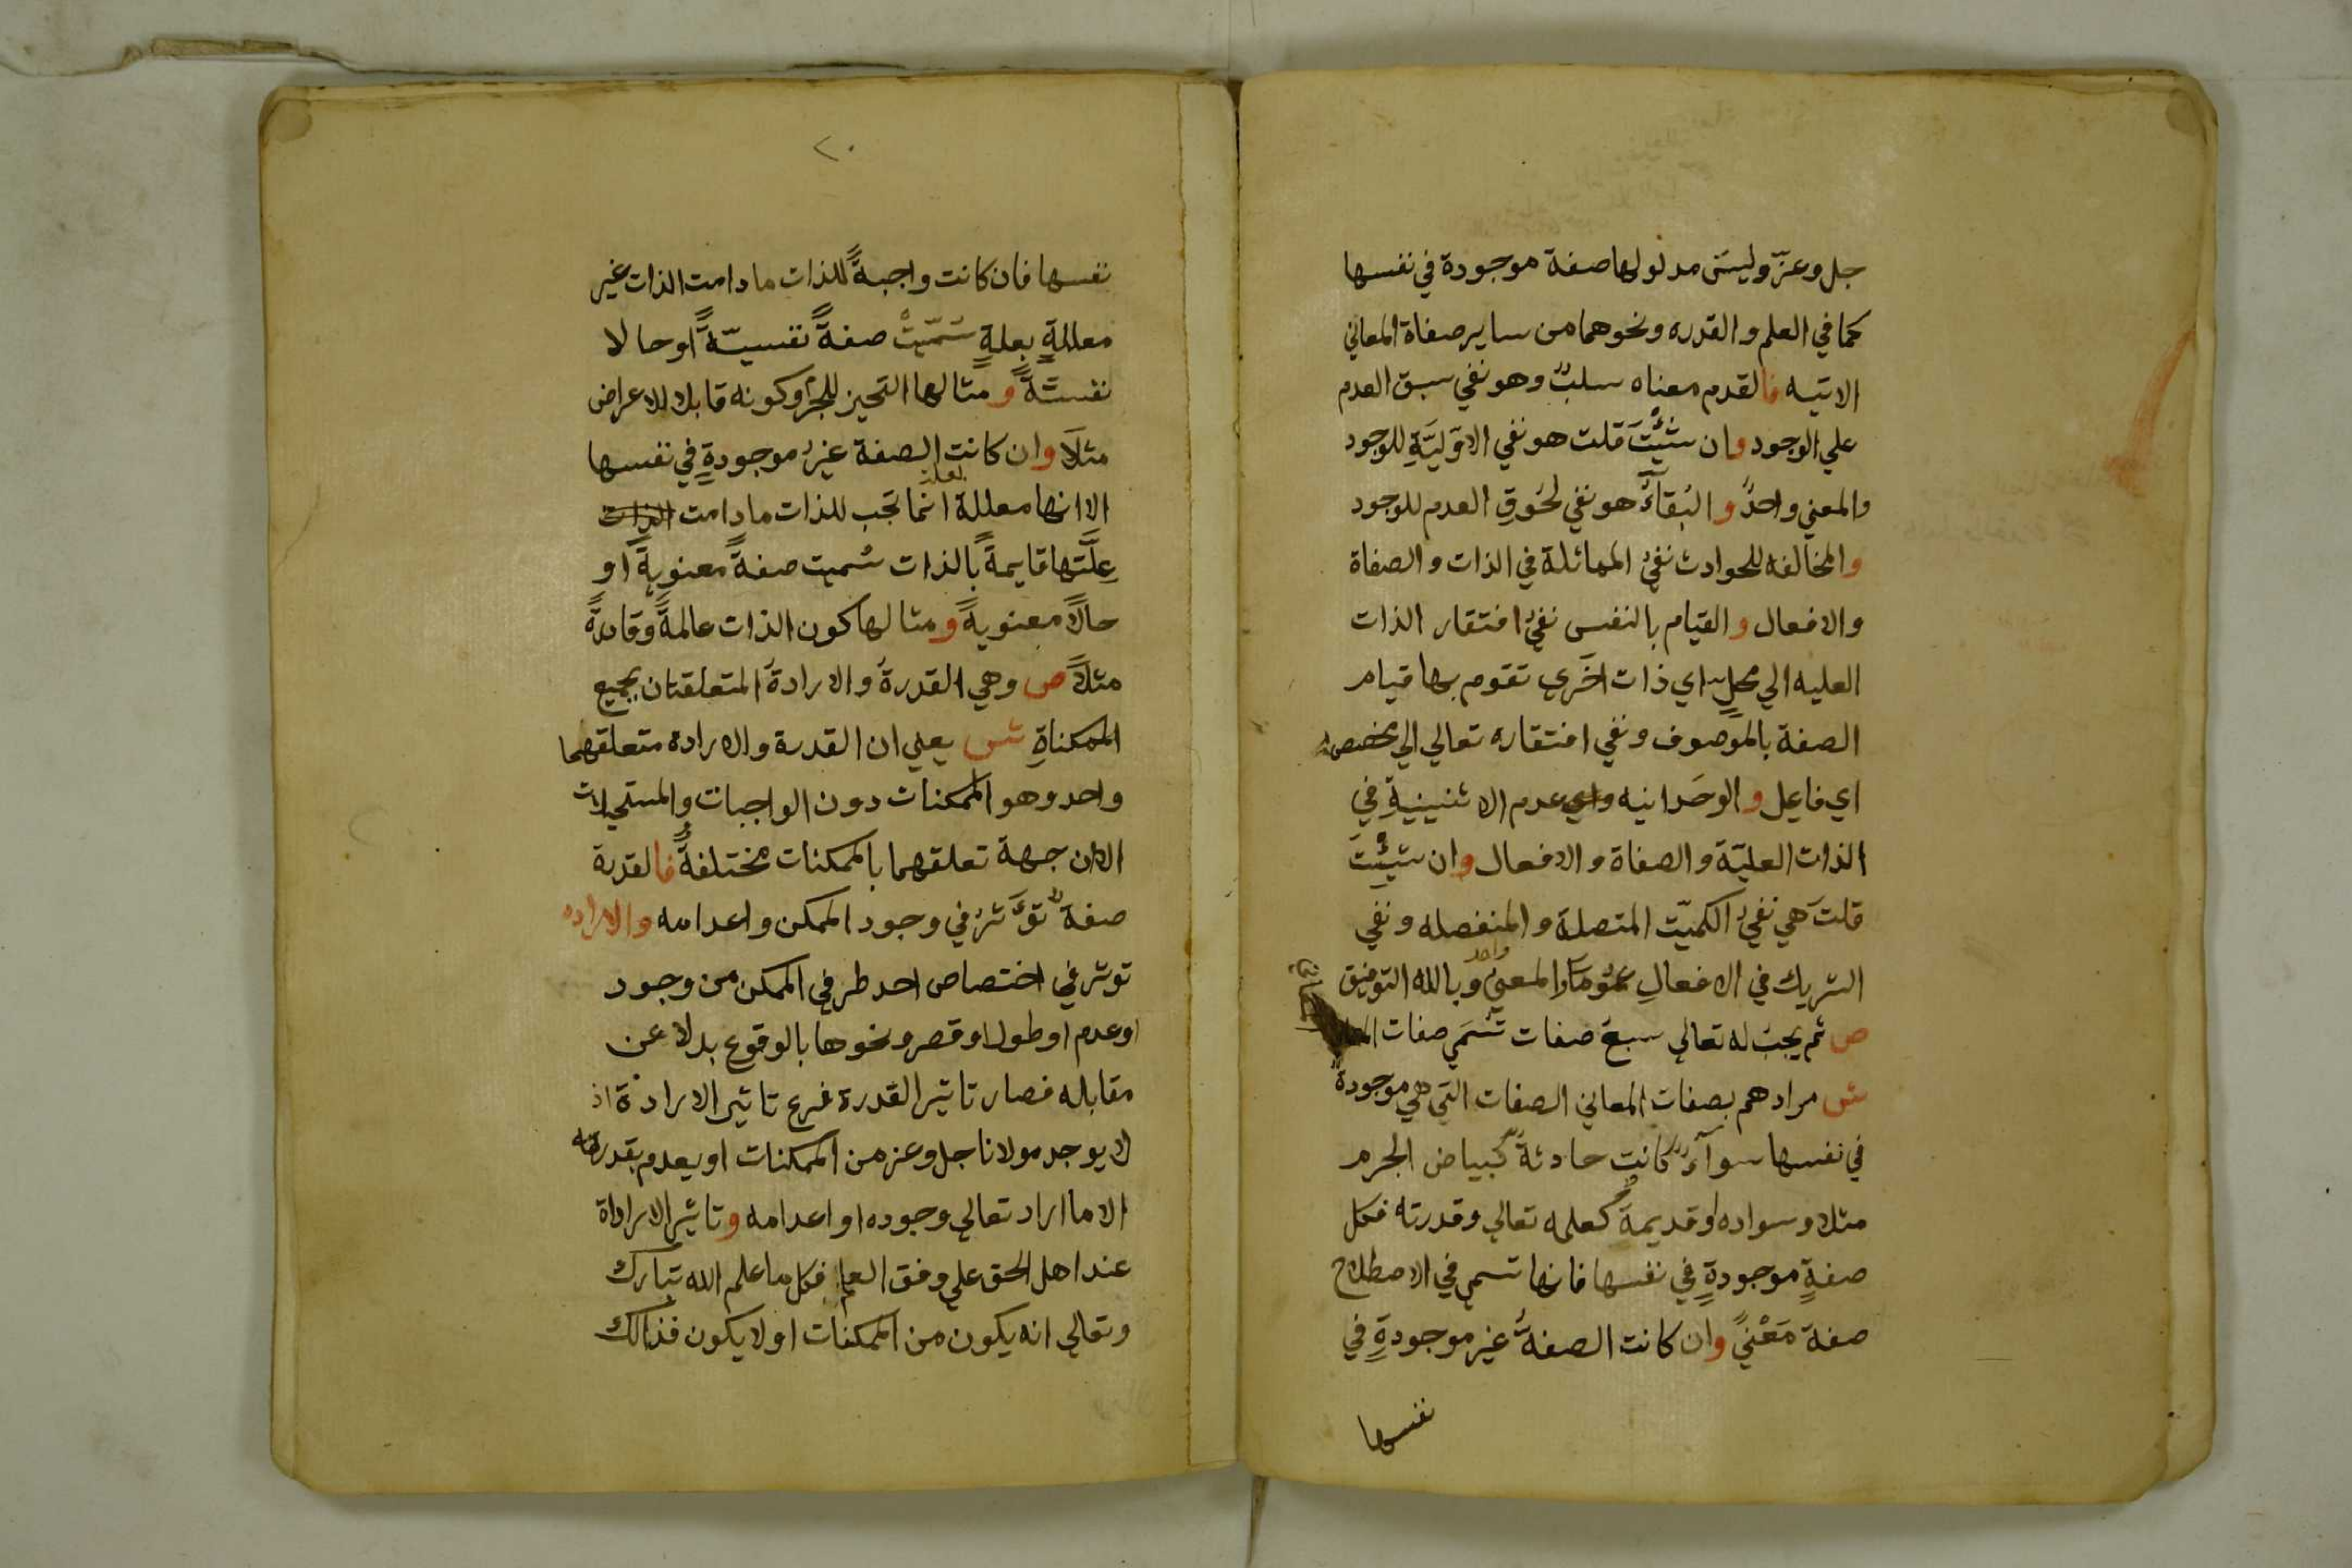 جل وعزّ وليسَ مدلولها صفة موجودة في نفسها
كما في العلم والقدره ونحوهما من ساير صفاة المعاني
الاتيه فالقدم معناه سلبٌ وهو نفي سبق العدم
علي الوجود وان شئْتَ قلت هو نفي الاوّليَّةِ للوجود
والمعني واحدٌ والبَقآءُ هو نفي لحُوقِ العدم للوجود
والمخالفه للحوادث نفيُ المماثلة في الذات والصفاة
والافعال والقيام بالنفس نفيُ افتقار الذات
العليه الي محلٍ اي ذات اخَري تقوم بها قيام
الصفة بالموصوف ونفي افتقاره تعالي الي مخصص
اي فاعيل والوحَدانيه واي عدم الاثنينيةِ في
الذات العليّة والصفاة والافعال وان شئْتَ
قلتَ هي نفيُ الكميّت المتصلة والمنفصله ونفي
الشريك في الافعالِ عمُومًا والمعنيُ واحد وبالله التوفيق
ص ثم يجبُ له تعالي سبعَ صفات تُسَمَي صفات
المعاني
ش مرادهم بصفات المعاني الصفات التي هي موجودةٌ
في نفسها سوآءٌ كانت حادثةً كبياض الجرم
مثلا وسواده او قديمةً كعلمه تعالي وقدرته فكل
صفةٍ موجودةٍ في نفسها فانها تسمي في الاصطلاح
صفة مَعْنيً وان كانت الصفةُ غير موجودةٍ في
نفسها
٢٠
نفسها فان كانت واجبةً للذات ما دامت الذات غير
معاللةٍ بعلةٍ سُمّيتْ صفةً نفسيّةً او حالا
نفسيّةً ومثالها التحيز للجرم وكونه قابلا للاعراض
مثلاً وان كانت الصفة غيرُ موجودةٍ في نفسها
الا انها معللة بعلة انما تجب للذات ما دامت الذات
عِلَّتها قايمةً بالذات سُميت صفةً معنويةً او
حالاً معنويةً ومثالها كون الذات عالمةً وقادرةً
مثلاً ص وهي القدرةُ والارادةُ المتعلقتان بجميع
الممكناةِ ش يعني ان القدرة والاراده متعلقهما
واحد وهو الممكنات دون الواجبات والمستحيلات
الا ان جهة تعلقهما بالممكنات مختلفةٌ فالقدرة
صفةٌ تؤَثرُ في وجود الممكن واعدامه والاراده
توثر في اختصاص احد طرفي الممكن من وجود
او عدم او طول او قصر ونحوها بالوقوع بدلا عن
مقابله فصار تاثير القدرة فرع تاثير الارادة اذ
لا يوجد مولانا جل وعز من الممكنات او يعدم بقدرته
الا ما اراد تعالي وجوده او اعدامه وتاثير الاراداة
عند اهل الحق علي وفق العلم فكل ما علم الله تبارك
وتعالي انه يكون من الممكنات او لا يكون فذالك